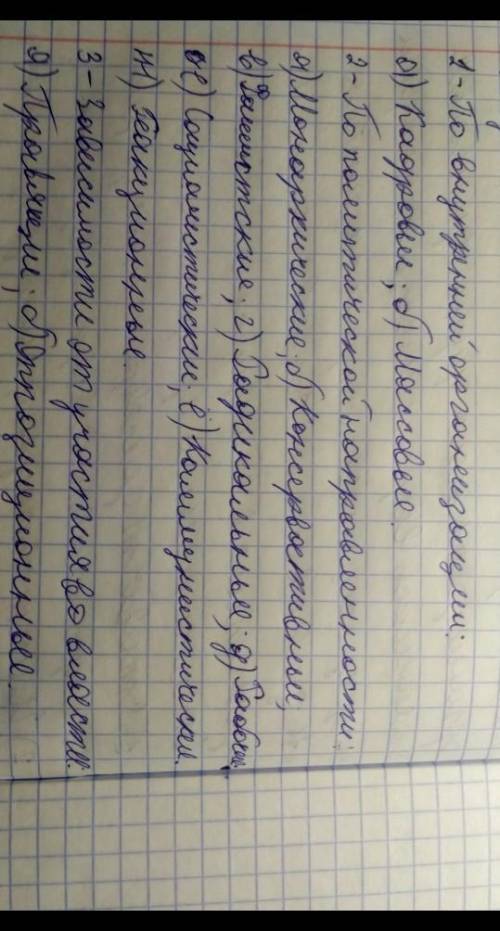 1 - По внутренней организации:
а) Кадровые; б) Массовые.
2 - По политической направленности:
а) Монархические; б) Консервативные;
в) Фашистские; г) Радикальные; д) Рабоч.
е) Социалистические; ё) Коммунистические.
ж) Реакционерные.
3 - Зависимости от участия во власти:
а) Правящие; б) Оппозиционные.